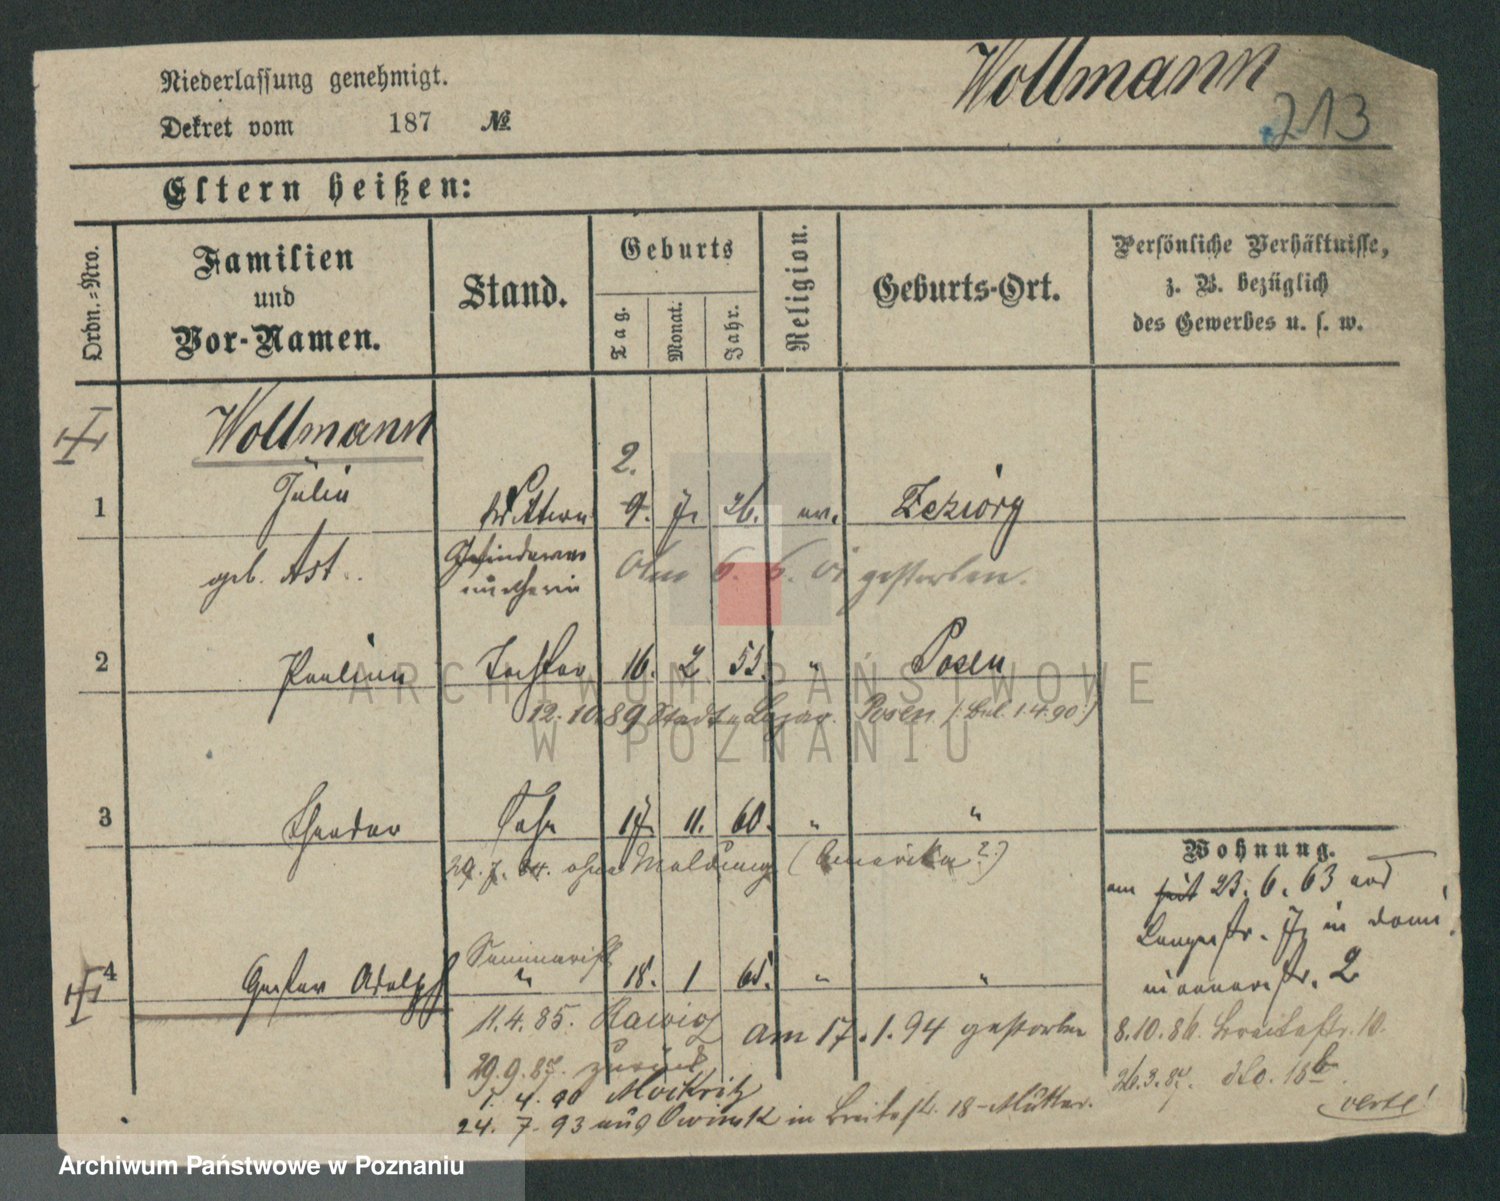 Wollmann
213
Niederlassung genehmigt.
Dekret vom 187 №
Eltern heißen:
Ordn.=Nro.
Familien
und
Vor-Namen.
Stand.
Geburts
Tag.
Monat.
Jahr.
Religion.
Geburts-Ort.
Persönliche Verhältnisse,
z. B. bezüglich
des Gewerbes u. s. w.
Wollmann
2.
1 Julie Wittwe 9. 7. 26. ev. Zeziorg
geb. Ast. Gesindever
mietherin
Am 6. 6. 01 gestorben.
2 Pauline Tochter 16. 2 55. " Posen
12.10.89 Stadt Lazar. Posen 1.4.90.)
3 Theodor Sohn 17. 11. 60. " "
29. 7. 84. ohne Meldung (Amerika?)
Wohnung.
am seit 23. 6. 63 aus
Langestr. 7 in
2
Seminarist
4 Gustav Adolph " 18. 1 65. " "
11.4.85. Rawicz am 17.1.94 gestorben
29.9.87. zurück
1. 4. 90 Mockritz
24. 7. 93 aus Owinsk in Breitestr. 18-Mutter.
8.10.86. Breitestr. 10.
26.3.87. dto. 18b
verte!
ARCHIWUM PAŃSTWOWE
W POZNANIU
Archiwum Państwowe w Poznaniu